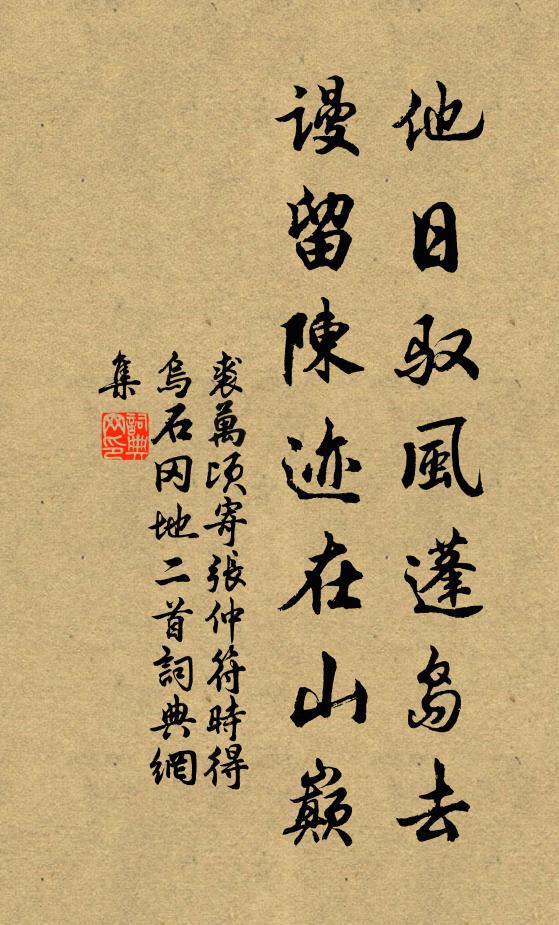 他日驭風蓬島去
謾留陳迹在山巔
裘萬頃寄張仲符時得
烏石冈地二首詞典網
集
詞典
网印